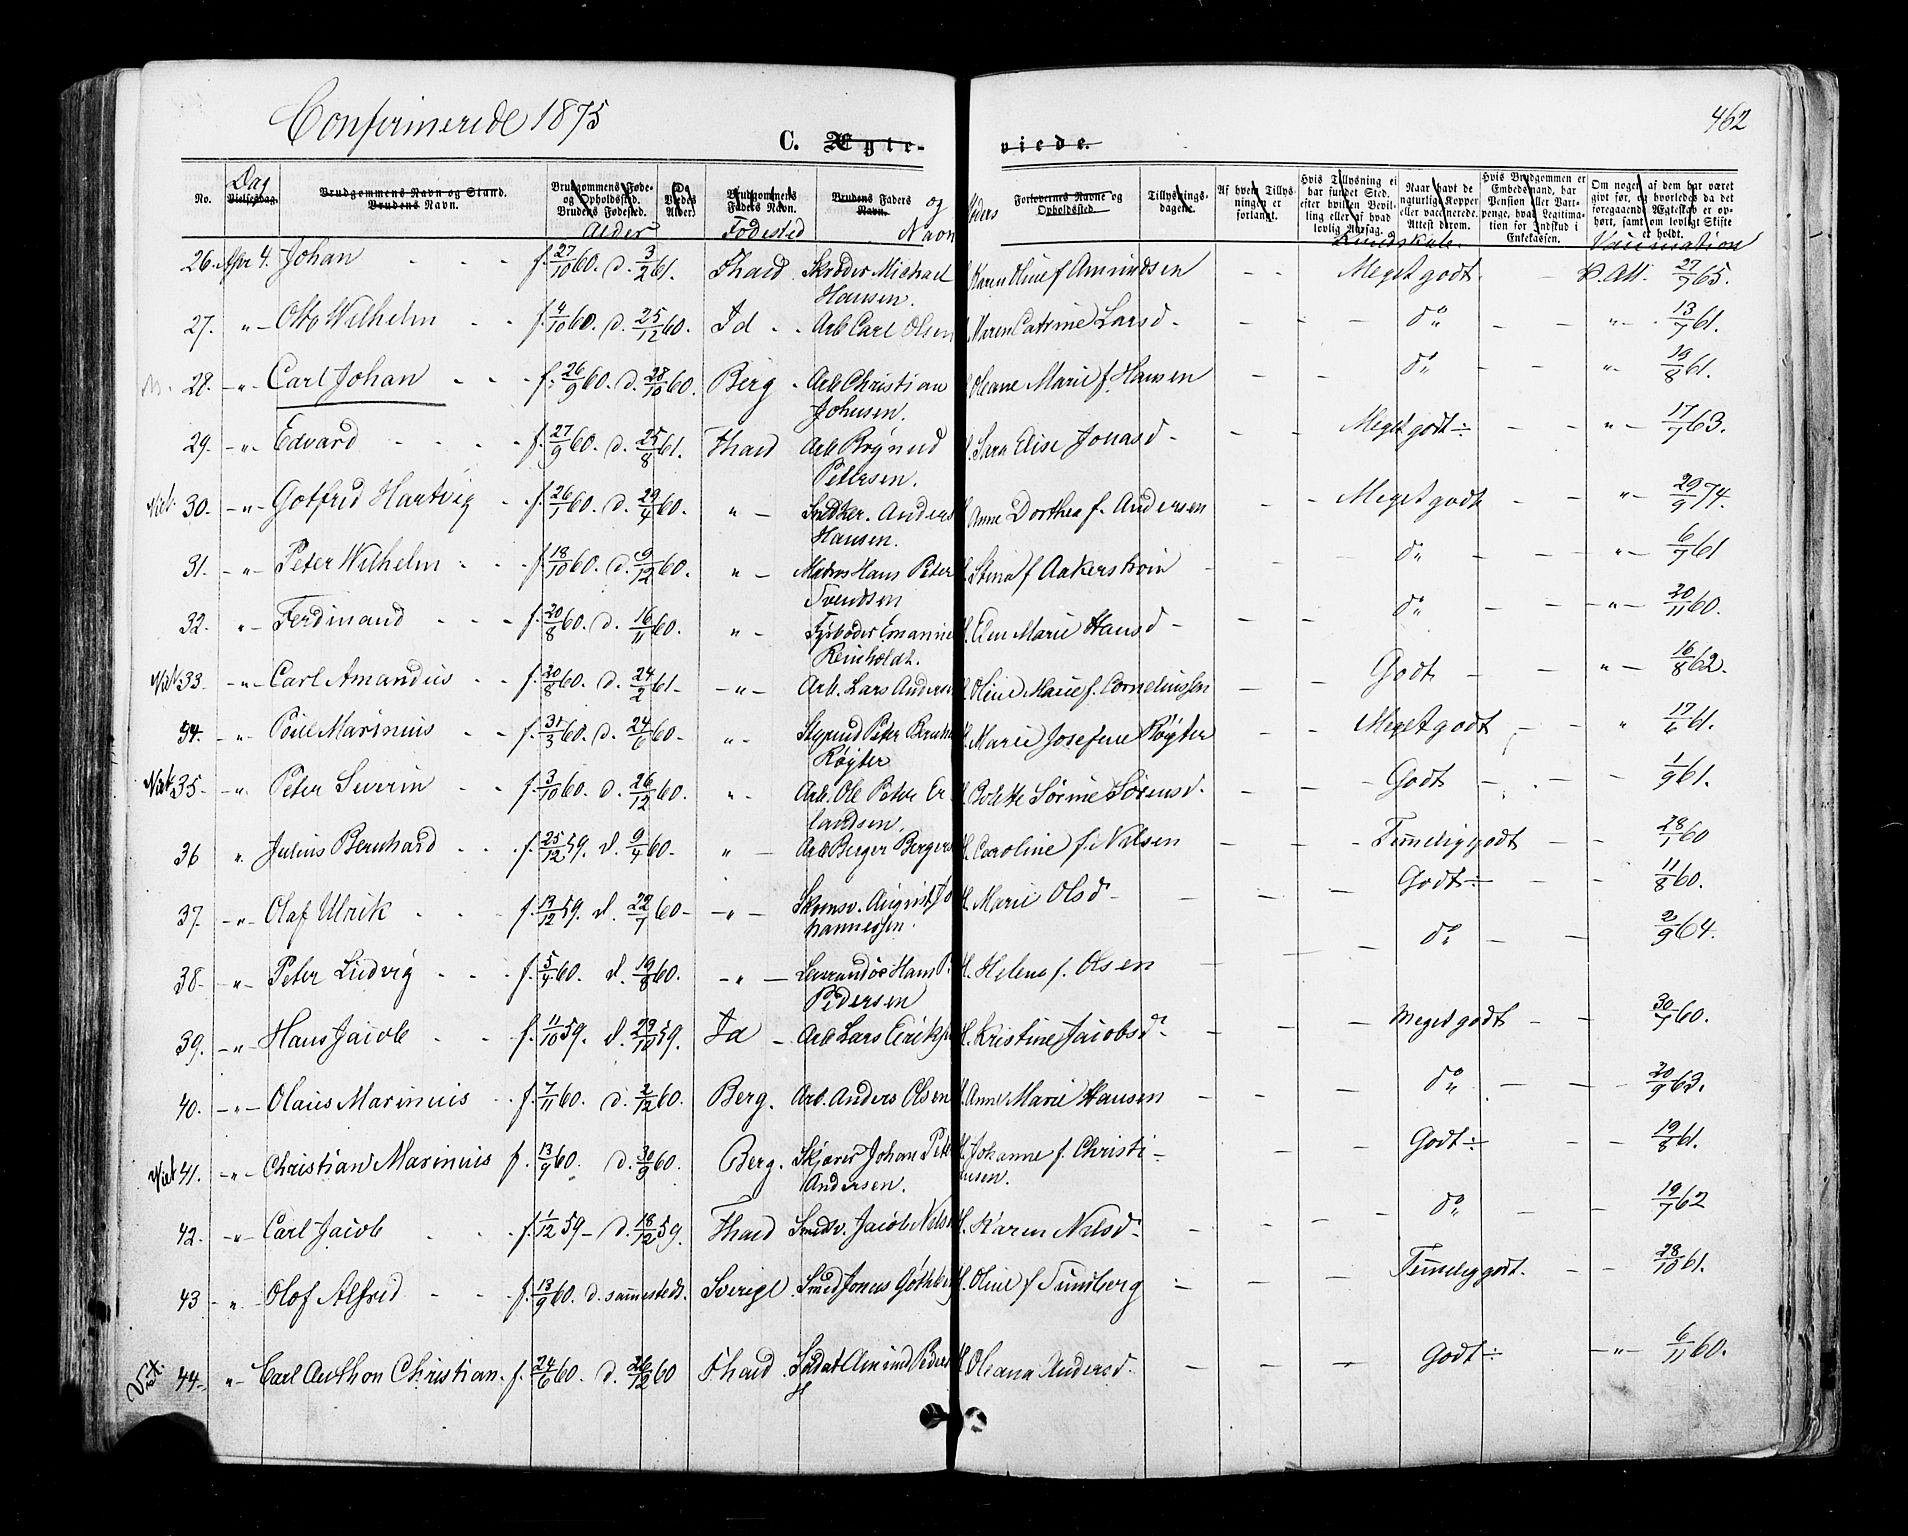 Confirmerede 1875
462
C. Ægte- viede.
No.
Dag
Vielsesdag.
Brudgommens Navn og Stand.
Brudens Navn.
Brudgommens Føde- og Opholdssted. Brudens Fødested.
Alder
De Viedes Alder.
Brudgommens Faders Navn.
Fødested
Brudens Faders Navn.
og Navn
Forlovernes Navne og Opholdssted.
Tillysnings- dagene.
Af hvem Tillys- ningen er forlangt.
Hvis Tillysning ei har fundet Sted, efter hvilken Bevil- ling eller af hvad lovlig Aarsag.
Naar havt de naturlige Kopper eller vaccinerede. Attest derom.
Kundskab.
Hvis Brudgommen er Embedsmand, har Pension eller Var- tpenge, hvad Legitima- tion for Indskud i Enkekassen.
Om nogen af dem har været givt før, og hvorledes da det foregaaende Ægteskab er op- hørt, samt om lovligt Skifte er holdt.
Vaccination
26. Apr 4. Johan f. 27/10 60. d. 3/2 61. Fhald Skræder Michael Hansen. Karen Oline f Amundsen Meget godt p. Att. 27/7 65.
27. " Otto Wilhelm f. 4/10 60. d. 25/12 60. Id Arb Carl Olsen Maren Catrine Larsd do 13/7 61.
28. " Carl Johan f. 26/9 60. d. 28/10 60. Berg Arb Christian Johnsen. Oleane Marie f. Hansen do 19/8 61.
29. " Edvard f. 27/9 60. d. 25/8 61. Fhald Arb Brynild Petersen. Sara Elise Jonasd Meget godt 17/7 63.
30. " Gotfred Hartvig f. 26/1 60. d. 29/4 60. " Snedker. Anders Hansen. H. Anne Dorthea f. Andersen Meget godt 29/9 74.
31. " Peter Wilhelm f. 18/10 60. d. 9/12 60. " Hans Peter Svendsen H. Stina f do 6/7 61
32. " Ferdinand f. 20/8 60. d. 16/11 60. " Fyrbøder Emanuel Reinholdt. H. Elen Marie Hansd do 20/11 60.
33. " Carl Amandus f. 20/8 60. d. 24/2 61 " Arb. Lars Andersen H. Oline Marie f. Corneliussen Godt 16/8 62.
34. " Marinius f. 31/3 60. d. 24/6 60 " Styrmd Peter Røyter H. Marie Josefine Røyter Meget godt 17/6 61.
35. " Peter Severin f. 3/10 60. d. 26/12 60. " Arb. Ole Peter Er landsen. H. Bolette Sørine Sørensd. Godt 1/9 61.
36 " Julius Bernhard f. 25/12 59. d. 9/4 60 " Arb Berger Bergers H. Caroline f. Nilsen Temelig godt 28/1 60
37. " Olaf Ulrik f. 13/12 59. d. 22/7 60 " Skomsv. August Jo hannessen. H. Marie Olsd Godt 11/8 60.
38. " Peter Ludvig f. 5/4 60. d. 19/8 60. " Hans P. Pedersen H. Helene f. Olsen do 2/9 64.
39. " Hans Jacob f. 11/10 59. d. 29/10 59. Id Arb Lars Eriks H. Kristine Jacobsd Meget godt 30/7 60.
40. " Olaus Marinius f. 7/11 60. d. 2/12 60. Berg. Arb. Anders Olsen H. Anne Marie Hansen do 20/9 63.
41. " Christian Marinius f. 13/9 60. d. 30/9 60. Berg. Skjærer Johan Peter Andersen. H. Johanne f. Christi- ansen. Godt 19/8 61.
42. " Carl Jacob f. 1/12 59 d. 18/12 59. Fhald Smedsv. Jacob Nils H. Karen Nelsd do 19/7 62
43 " Olof Alfred f. 13/9 60. d. sammesteds. Sverige. Smed Jonas H. Oline f Sundberg Temelig godt. 28/10 61.
44. " Carl Anthon Christian. f. 24/6 60. d. 26/12 60 Fhald Soldat Amund Peders H. Oleana Andersd Godt 6/11 60.